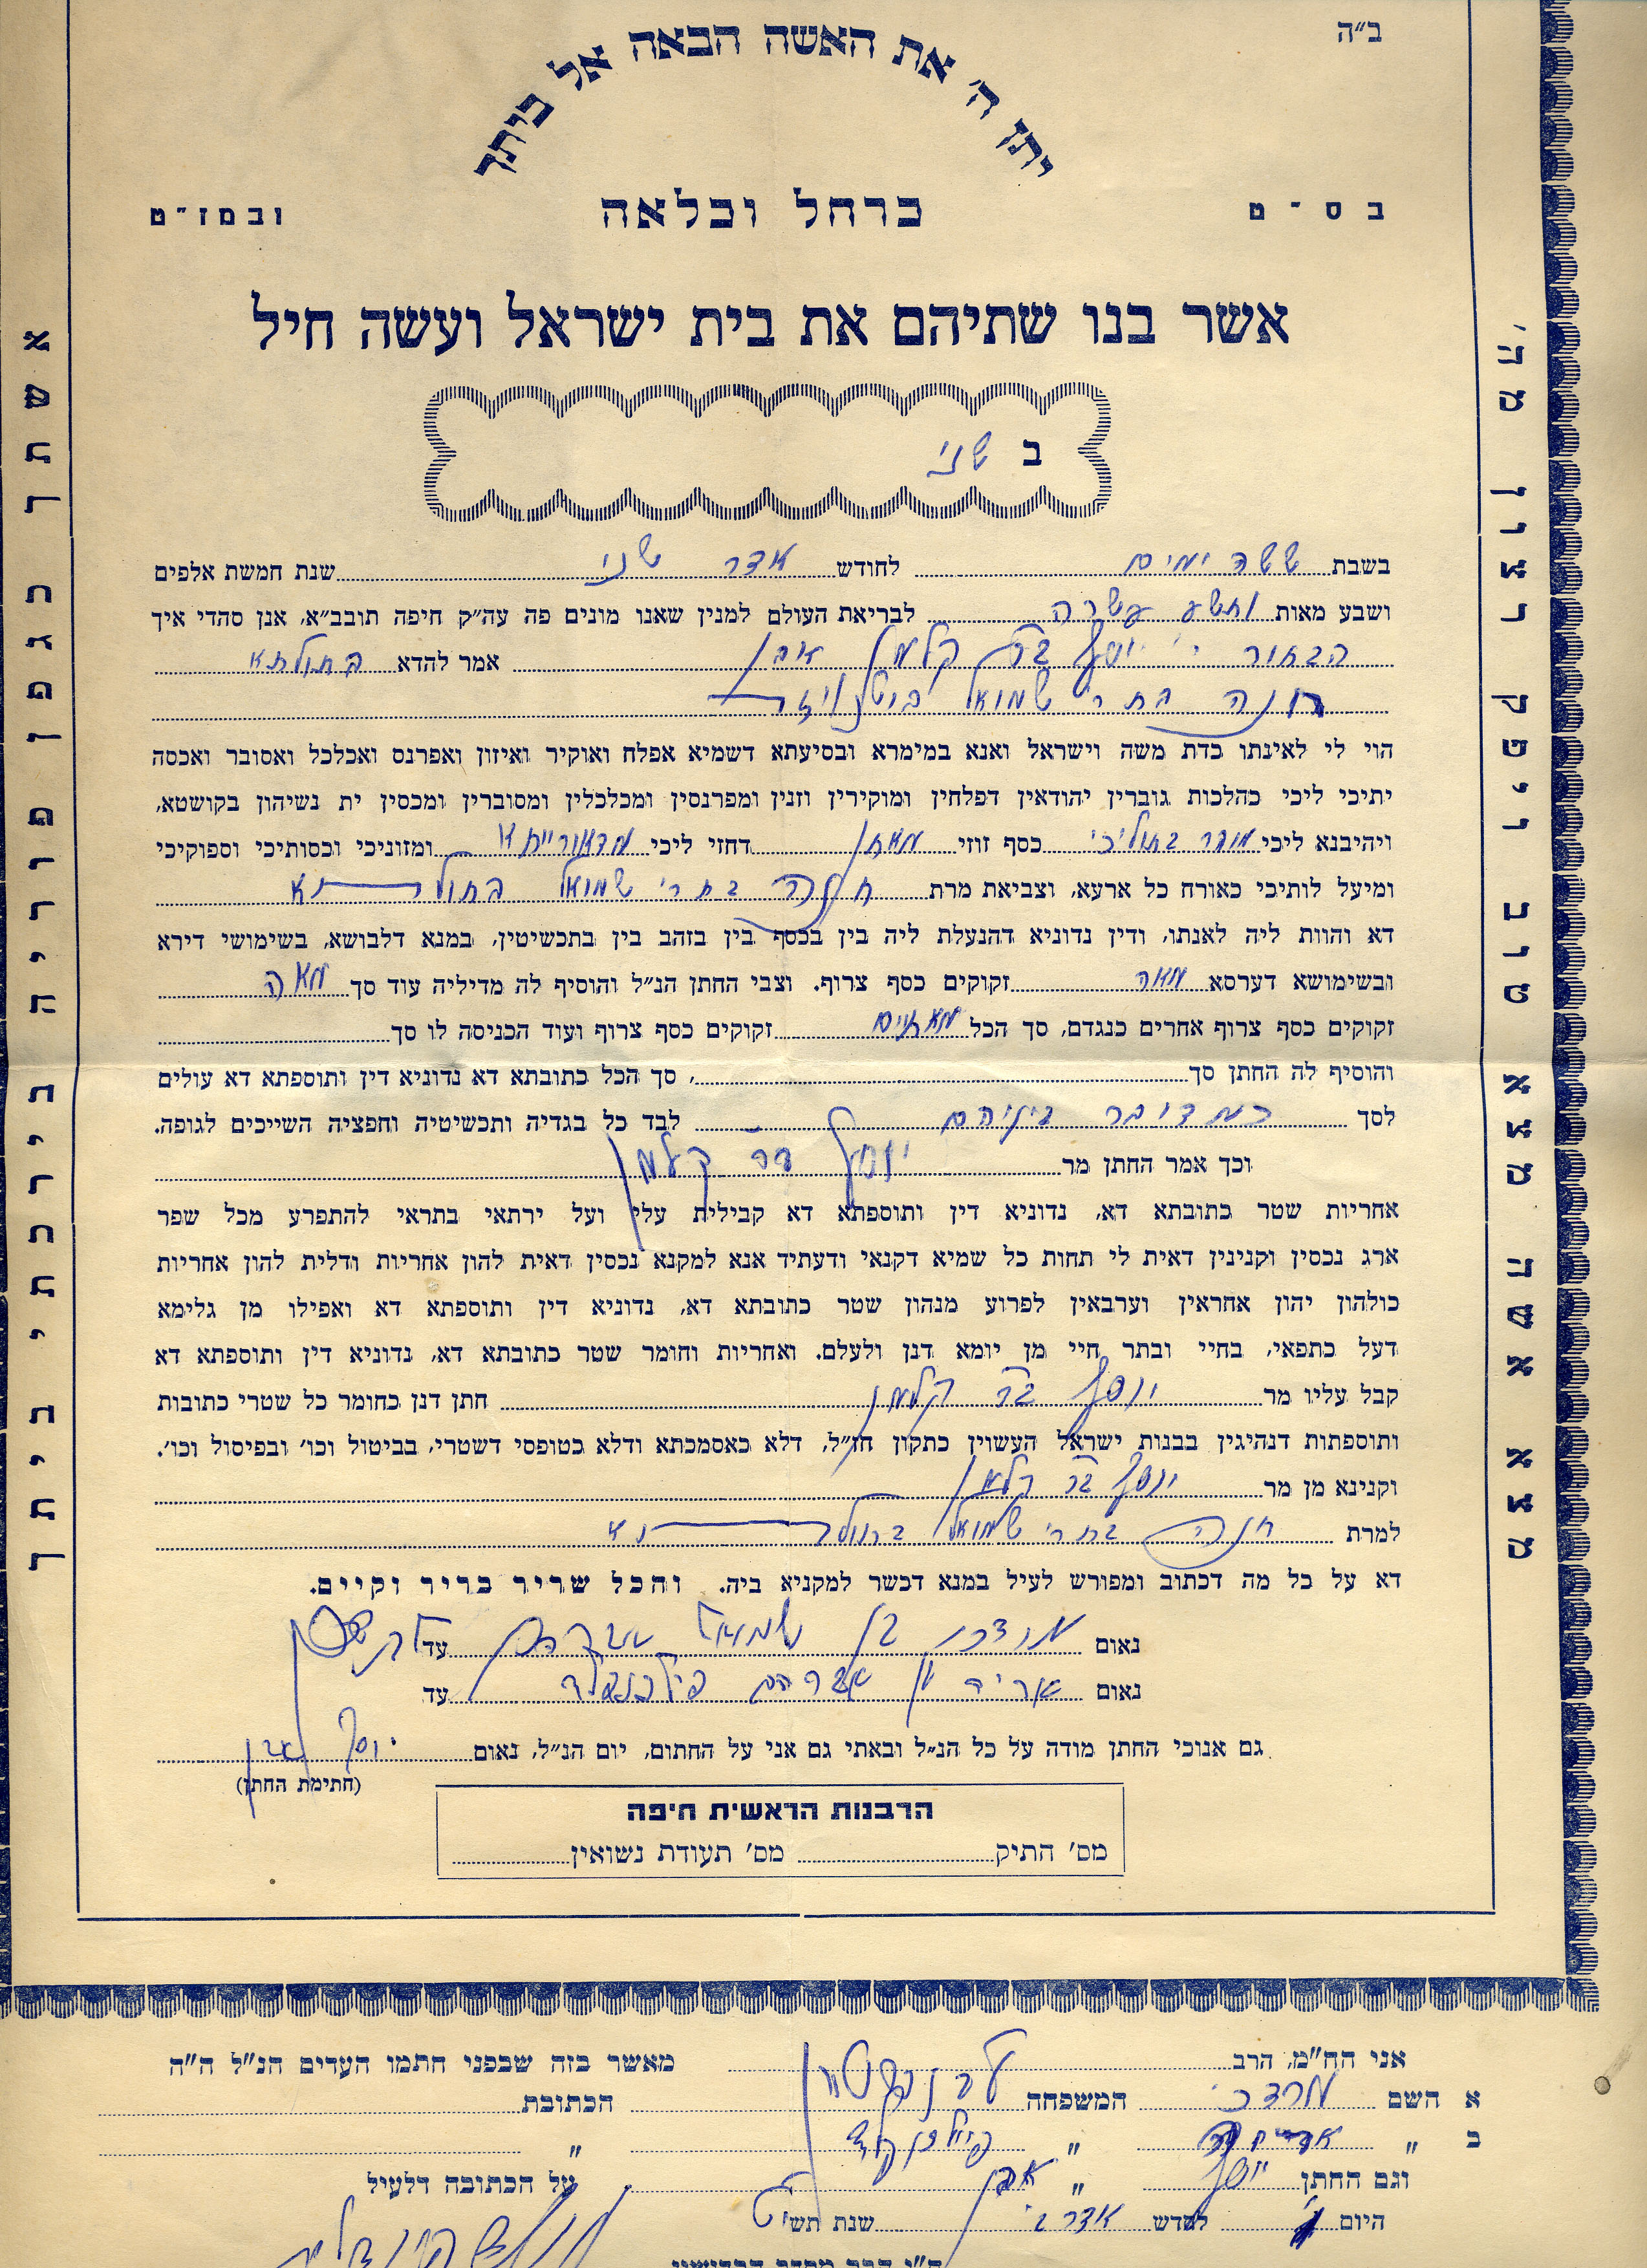 ב״ה
יתן ה׳ את האשה הבאה אל ביתך
ב ס ״ ט
כרחל וכלאה
ובמז״ט
אשר בנו שתיהם את בית ישראל ועשה חיל
ב שני
בשבת ששה ימים לחודש אדר שני שנת חמשת אלפים
ושבע מאות ותשע עשרה לבריאת העולם למנין שאנו מונים פה עה״ק חיפה תובב״א, אנן סהדי איך
הבחור ר׳ יוסף בר קלמן אבן אמר להדא בתולתא
חנה בת ר׳ שמואל
הוי לי לאינתו כדת משה וישראל ואנא במימרא ובסיעתא דשמיא אפלח ואוקיר ואיזון ואפרנס ואכלכל ואסובר ואכסה
יתיכי ליכי כהלכות גוברין יהודאין דפלחין ומוקירין וזנין ומפרנסין ומכלכלין ומסוברין ומכסין ית נשיהון בקושטא,
ויהיבנא ליכי מוהר בתוליכי כסף זוזי מאתן דחזי ליכי מדאורייתא ומזוניכי וכסותיכי וספוקיכי
ומיעל לותיכי כאורח כל ארעא, וצביאת מרת חנה בת ר׳ שמואל בתולתא
דא והוות ליה לאנתו, ודין נדוניא דהנעלת ליה בין בכסף בין בזהב בין בתכשיטין, במנא דלבושא, בשימושי דירא
ובשימושא דערסא מאה זקוקים כסף צרוף. וצבי החתן הנ״ל והוסיף לה מדיליה עוד סך מאה
זקוקים כסף צרוף אחרים כנגדם, סך הכל מאתים זקוקים כסף צרוף ועוד הכניסה לו סך
והוסיף לה החתן סך , סך הכל כתובתא דא נדוניא דין ותוספתא דא עולים
לסך כמדובר ביניהם לבד כל בגדיה ותכשיטיה וחפציה השייכים לגופה.
וכך אמר החתן מר יוסף בר קלמן
אחריות שטר כתובתא דא, נדוניא דין ותוספתא דא קבילית עלי ועל ירתאי בתראי להתפרע מכל שפר
ארג נכסין וקנינין דאית לי תחות כל שמיא דקנאי ודעתיד אנא למקנא נכסין דאית להון אחריות ודלית להון אחריות
כולהון יהון אחראין וערבאין לפרוע מנהון שטר כתובתא דא, נדוניא דין ותוספתא דא ואפילו מן גלימא
דעל כתפאי, בחיי ובתר חיי מן יומא דנן ולעלם. ואחריות וחומר שטר כתובתא דא, נדוניא דין ותוספתא דא
קבל עליו מר יוסף בר קלמן חתן דנן כחומר כל שטרי כתובות
ותוספתות דנהיגין בבנות ישראל העשוין כתקון חז״ל, דלא כאסמכתא ודלא כטופסי דשטרי, בביטול וכו׳ ובפיסול וכו׳.
וקנינא מן מר יוסף בר קלמן
למרת חנה בת ר׳ שמואל בתולתא
דא על כל מה דכתוב ומפורש לעיל במנא דכשר למקניא ביה. והכל שריר בריר וקיים.
נאום מרדכי בן שמואל עד
נאום אריה בן אברהם עד
גם אנוכי החתן מודה על כל הנ״ל ובאתי גם אני על החתום, יום הנ״ל, נאום יוסף אבן
(חתימת החתן)
הרבנות הראשית חיפה
מס׳ התיק מס׳ תעודת נשואין
אני הח״מ, הרב מאשר בזה שבפני חתמו העדים הנ״ל ה״ה
א השם מרדכי המשפחה הכתובת
ב ״ אריה ״ ״
וגם החתן יוסף ״ אבן על הכתובה דלעיל
היום לחדש אדר ב׳ שנת תשי״ט
מה׳ רצון ויפק טוב מצא אשה מצא
אשתך כגפן פוריה בירכתי ביתך